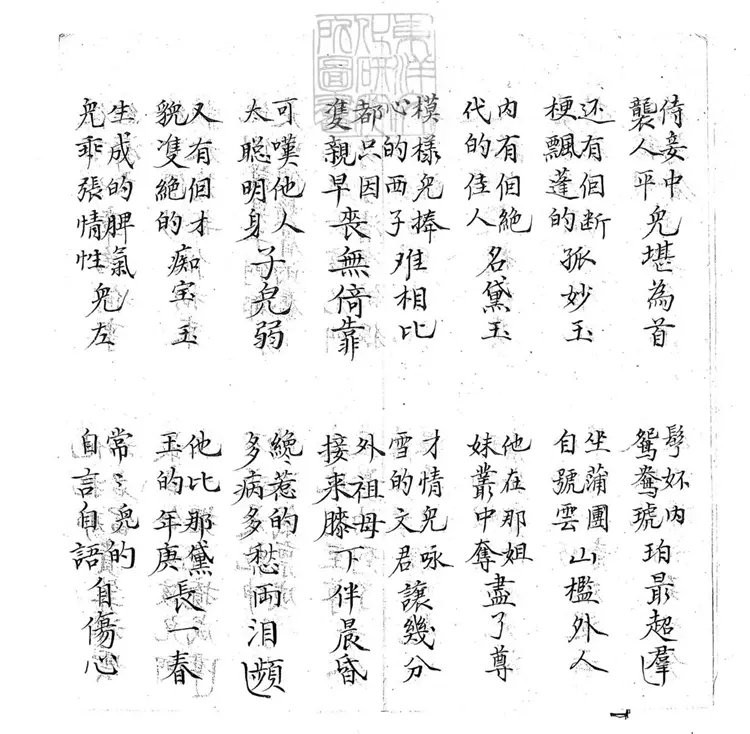 侍妾中襲人平兒堪為首
内鴛鴦琥珀最超羣
还有個断梗飄蓬的孤妙玉
坐蒲團自號雲山檻外人
内有個絶代的佳人名黛玉
他在那姐妹叢中奪盡了尊
模樣兒捧心的西子难相比
才情兒咏雪的文君讓幾分
都只因雙親早喪無倚靠
外祖母接来膝下伴晨昏
可嘆他人太聰明身子兒弱
纔惹的多病多愁両泪頻
又有個才貌雙絶的痴宝玉
他比那黛玉的年庚長一春
生成的脾氣兒乖張情性兒左
常〻兒的自言自語自傷心